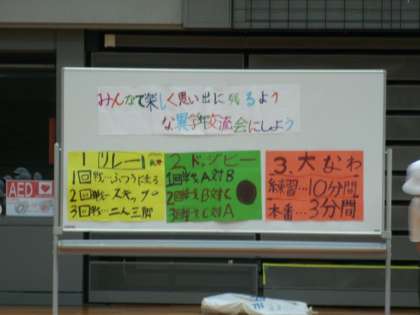 みんなで楽しく思い出に残るよう
な異学年交流会にしよう
1 リレー
1回戦…ふつうに走る
2回戦…スキップ
3回戦…二人三脚
2.ドッジビー
1回戦A対B
2回戦B対C
3回戦C対A
3.大なわ
練習…10分間
本番…3分間
AED